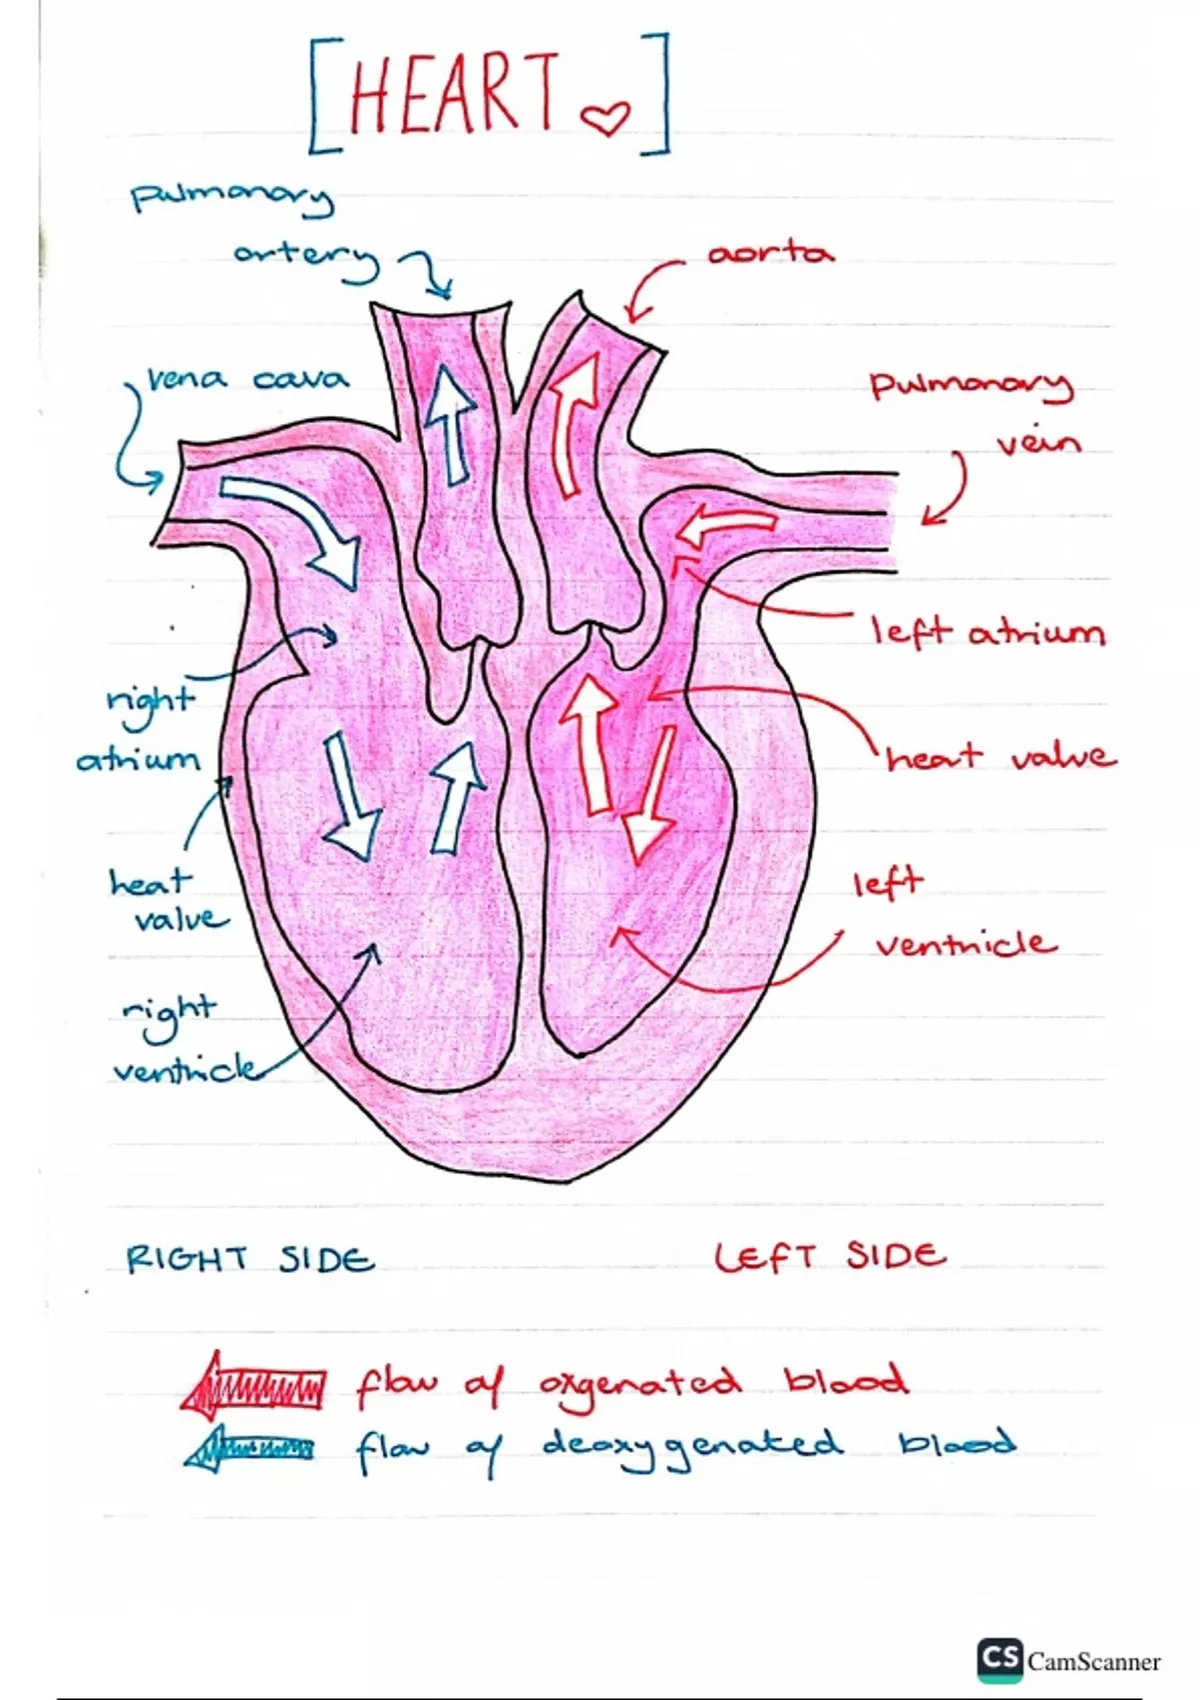 [HEART]
pulmonary
artery
aorta
vena cava
pulmonary
vein
left atrium
right
atrium
heart valve
heat
valve
left
ventricle
right
ventricle
RIGHT SIDE
LEFT SIDE
flow of oxgenated blood
flow of deoxygenated blood
CS CamScanner